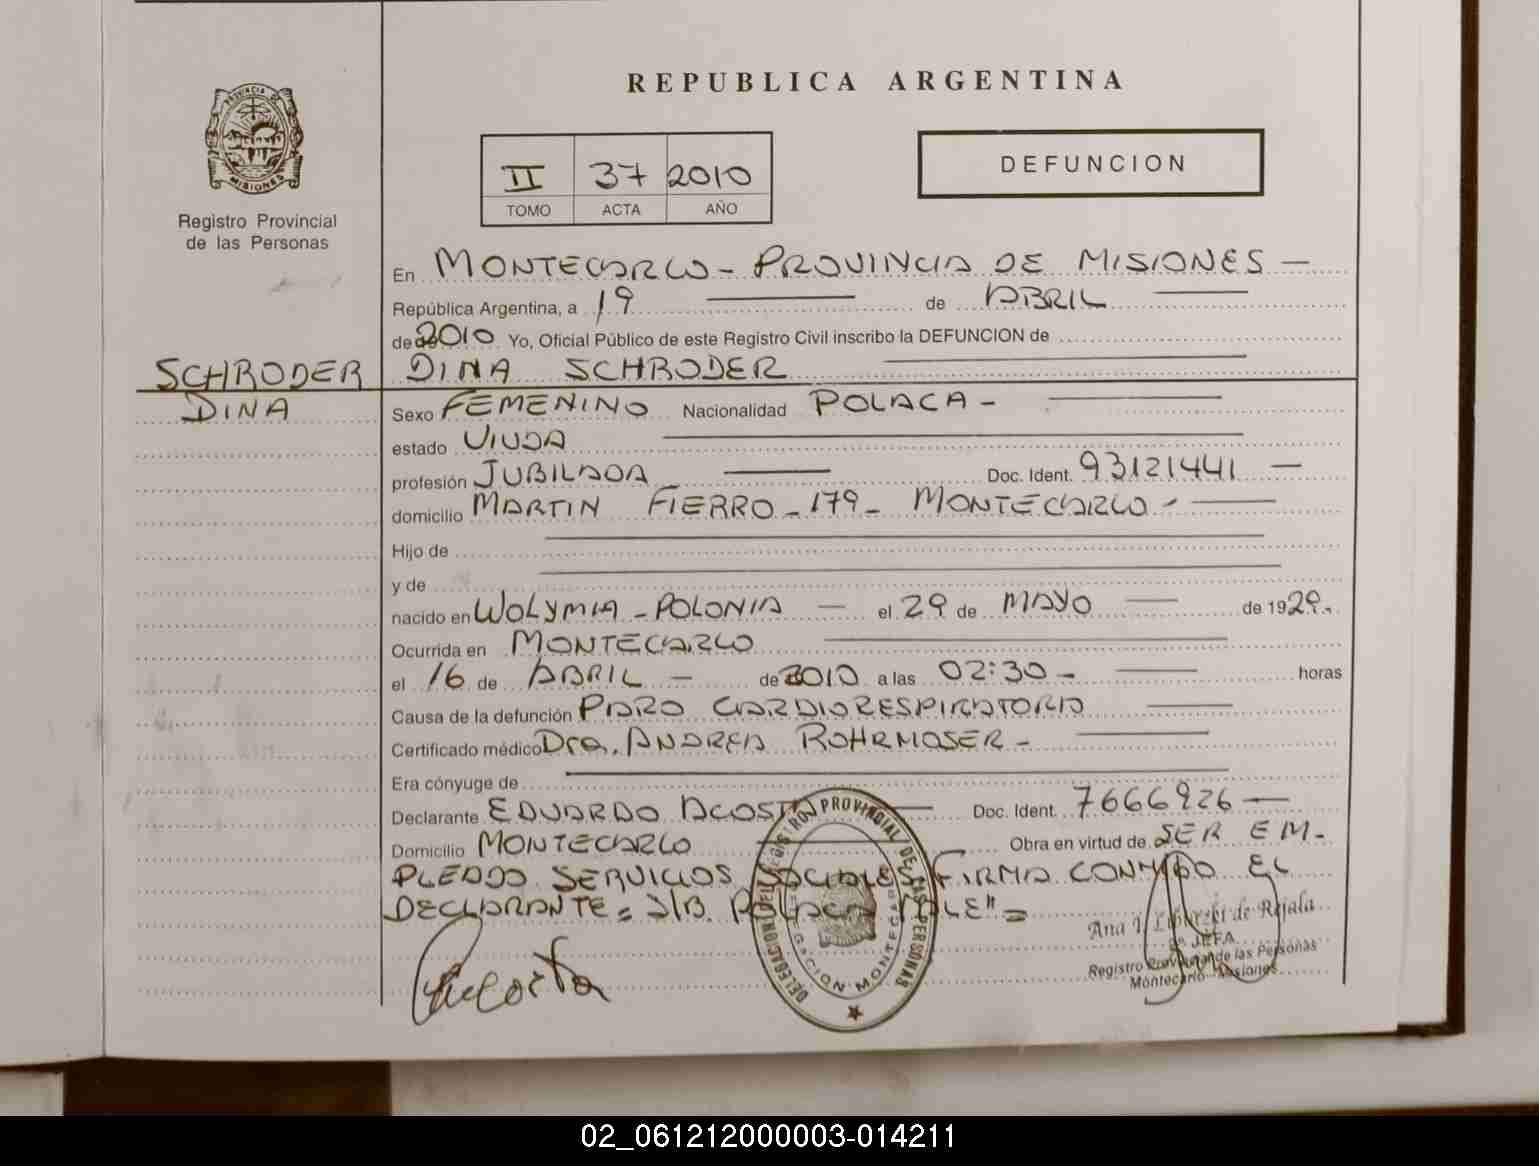 REPUBLICA ARGENTINA
PROVINCIA DE
MISIONES
Registro Provincial
de las Personas
II 37 2010
TOMO ACTA AÑO
DEFUNCION
En MONTECARLO - PROVINCIA DE MISIONES -
República Argentina, a 19 de ABRIL
de 2010 Yo, Oficial Público de este Registro Civil inscribo la DEFUNCION de
SCHRODER DINA SCHRODER
DINA
Sexo FEMENINO Nacionalidad POLACA -
estado VIUDA
profesión JUBILADA Doc. Ident. 93121441 -
domicilio MARTIN FIERRO - 179 - MONTECARLO -
Hijo de
y de
nacido en WOLYMIA - POLONIA - el 29 de MAYO de 1929.
Ocurrida en MONTECARLO
el 16 de ABRIL - de 2010 a las 02:30 - horas
Causa de la defunción PARO CARDIORESPIRATORIO
Certificado médico Dra. ANDREA ROHRMOSER -
Era cónyuge de
Declarante EDUARDO ACOSTA Doc. Ident. 7666926 -
Domicilio MONTECARLO Obra en virtud de SER EM-
PLEADO SERVICIOS SOCIALES FIRMA CONMIGO EL
DECLARANTE = S/B. POLACA VALE" =
Acosta
DELEGACION DEL REGISTRO PROVINCIAL DE LAS PERSONAS
DELEGACION MONTECARLO
Ana de Rejala
JEFA
Registro Provincial de las Personas
Montecarlo Misiones
02_061212000003-014211